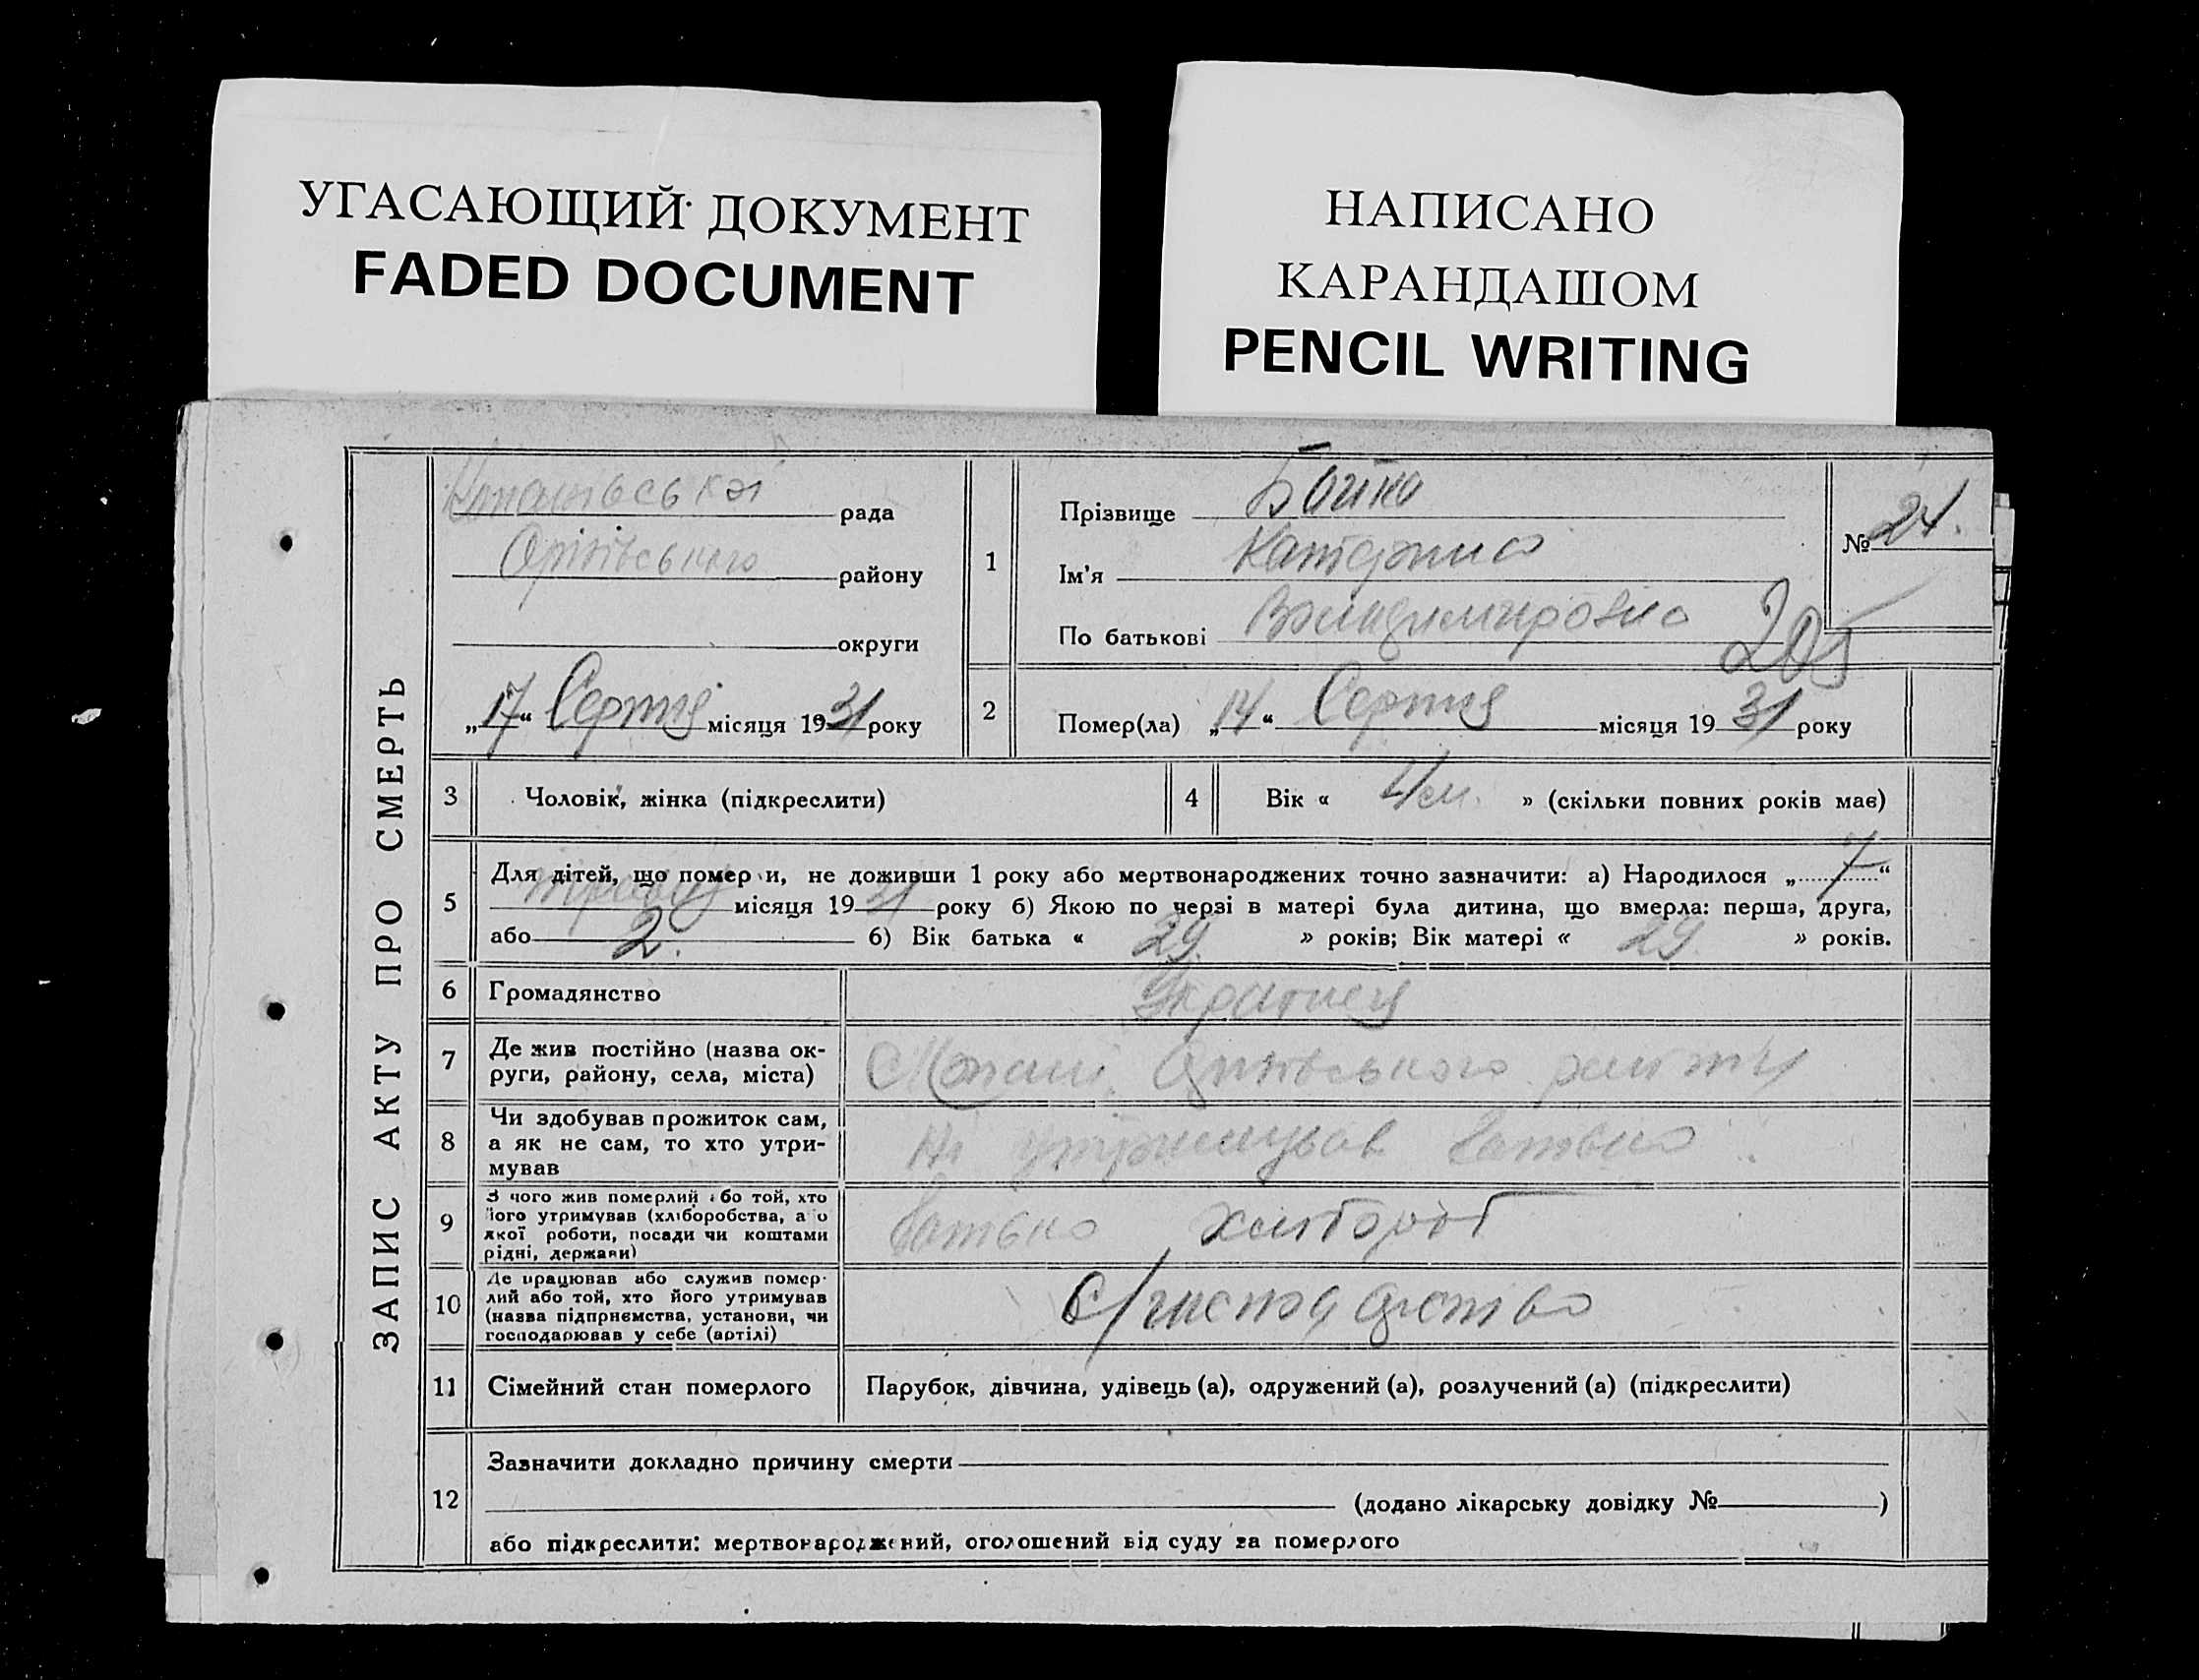 УГАСАЮЩИЙ ДОКУМЕНТ
FADED DOCUMENT
НАПИСАНО
КАРАНДАШОМ
PENCIL WRITING
ЗАПИС АКТУ ПРО СМЕРТЬ
рада
району
округи
„17“ Серпня місяця 1931 року
1
Прізвище Бойко
Ім'я Катерина
По батькові Володимировна
№ 24.
205
2
Помер(ла) „14“ Серпня місяця 19 31 року
3 Чоловік, жінка (підкреслити)
4 Вік « 4 м. » (скільки повних років має)
5 Для дітей, що померли, не доживши 1 року або мертвонароджених точно зазначити: а) Народилося „ 7 “
травня місяця 19 31 року б) Якою по черзі в матері була дитина, що вмерла: перша, друга,
або 2. б) Вік батька « 29 » років; Вік матері « 29 » років.
6 Громадянство
7 Де жив постійно (назва округи, району, села, міста)
району
8 Чи здобував прожиток сам,
а як не сам, то хто утри-
мував
Ні утримував батько
9 З чого жив померлий або той, хто
його утримував (хліборобства, або
якої роботи, посади чи коштами
рідні, держави)
батько хлібороб
10 Де працював або служив помер-
лий або той, хто його утримував
(назва підприємства, установи, чи
господарював у себе (артілі)
11 Сімейний стан померлого
Парубок, дівчина, удівець (а), одружений (а), розлучений (а) (підкреслити)
12 Зазначити докладно причину смерти
(додано лікарську довідку № )
або підкреслити: мертвонароджений, оголошений від суду за померлого